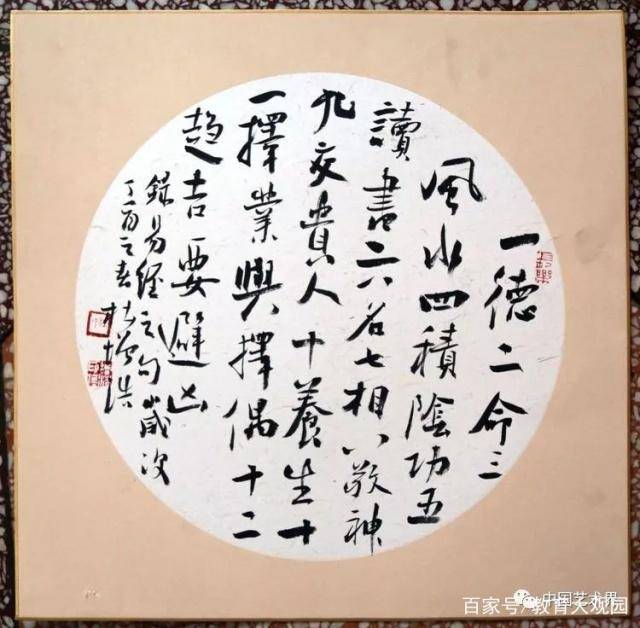 一德二命三
風水四積陰功五
讀書六名七相八敬神
九交貴人十養生十
一擇業與擇偶十二
趋吉要避凶
錄易經之句歲次
丁酉之春
中国艺术界
百家号/教育大观园